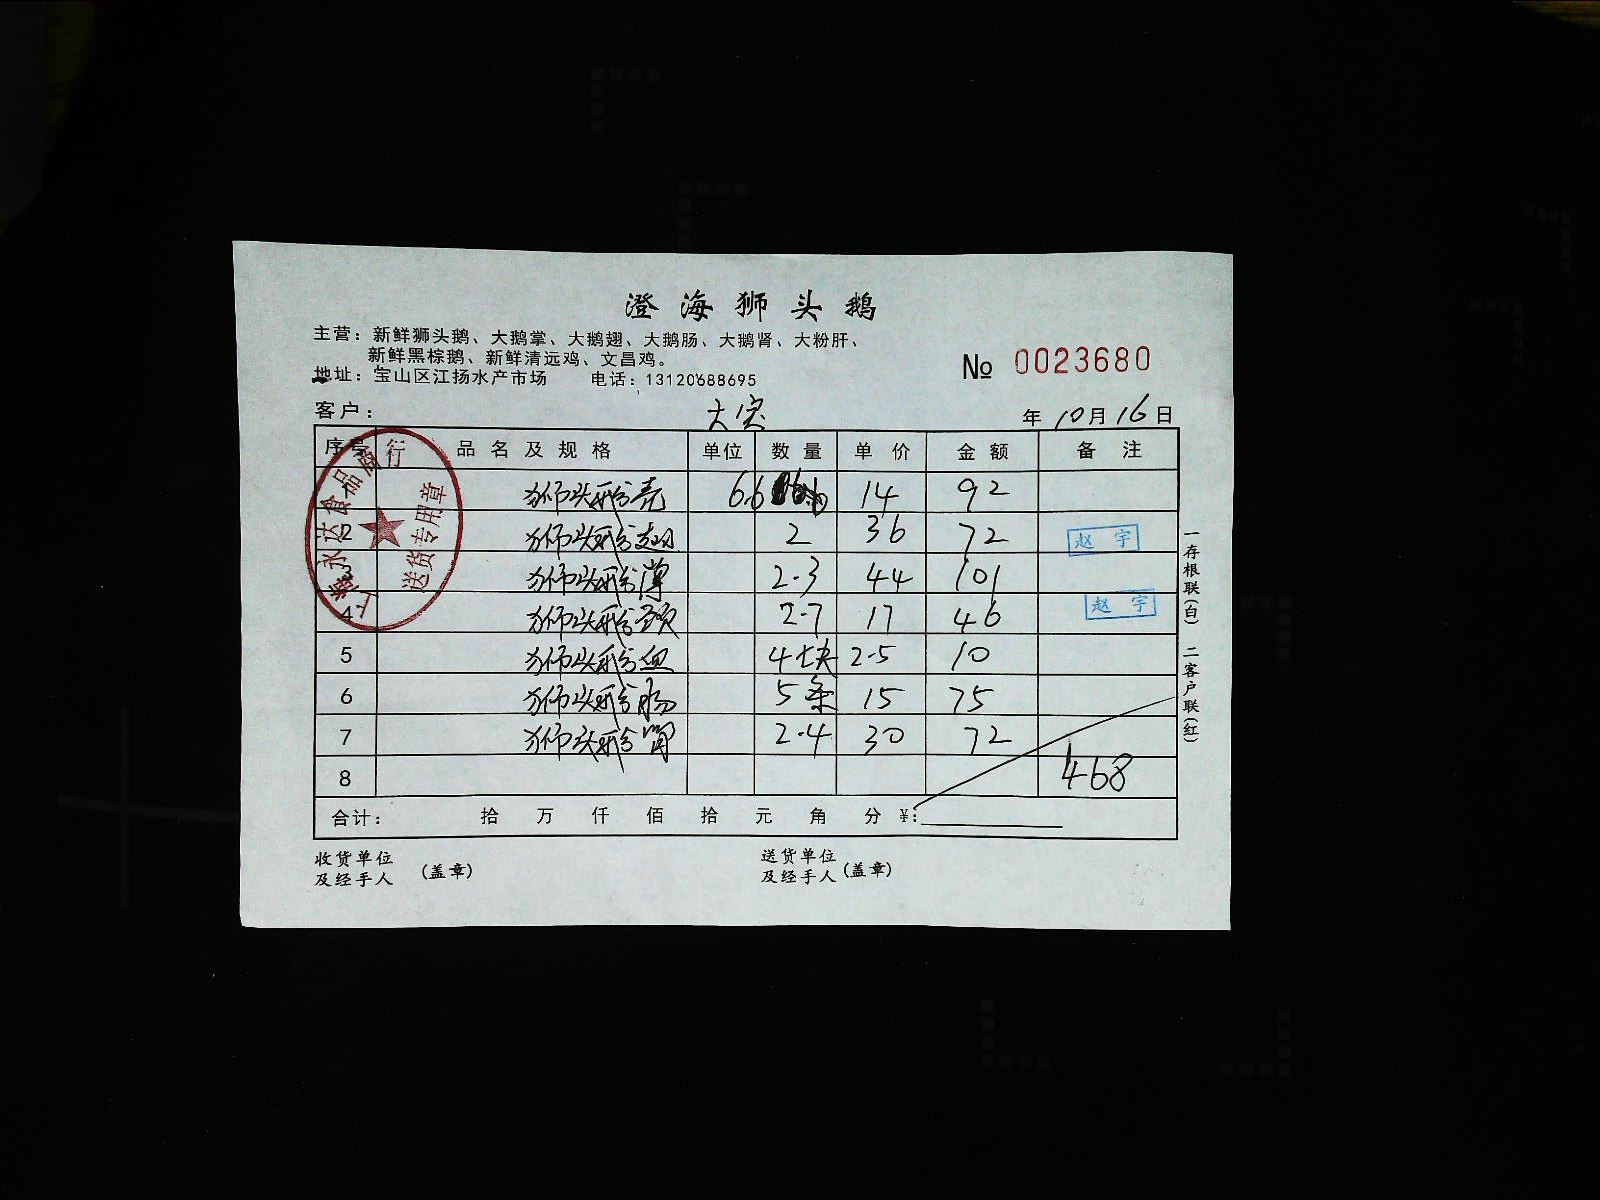 澄海狮头鹅
主营：新鲜狮头鹅、大鹅掌、大鹅翅、大鹅肠、大鹅肾、大粉肝、
新鲜黑棕鹅、新鲜清远鸡、文昌鸡。
地址：宝山区江扬水产市场 电话：13120688695
№ 0023680
客户： 大宝 年 10月 16日
序号 品名及规格 单位 数量 单价 金额 备注
狮头鹅壳 6.6 14 92
2 狮头鹅翅 2 36 72 赵宇
3 狮头鹅 2.3 44 101
4 狮头鹅颈 2.7 17 46 赵宇
5 狮头鹅血 4块 2.5 10
6 狮头鹅肠 5条 15 75
7 狮头鹅 2.4 30 72
8 468
合计： 拾 万 仟 佰 拾 元 角 分 ¥：
收货单位及经手人（盖章） 送货单位及经手人（盖章）
一存根联（白） 二客户联（红）
上海永达食品商行
送货专用章